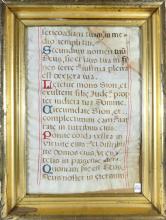 sericordiam tuam in me
dio templi tui.
Secundum nomen tuũ
Deus, sic et laus tua in fi
nes terræ iustitia plena
est dextera tua.
Lætetur mons Sion, et
exultent filiæ Iudæ pro
pter iudicia tua Domine.
Circumdate Sion, et
complectimini eam
in turribus
Ponite corda vestra in
virtute eius et distribuite
domos eius ut enarre
tis in progenie altera
Quoniam hic est Deus,
Deus noster in æternum